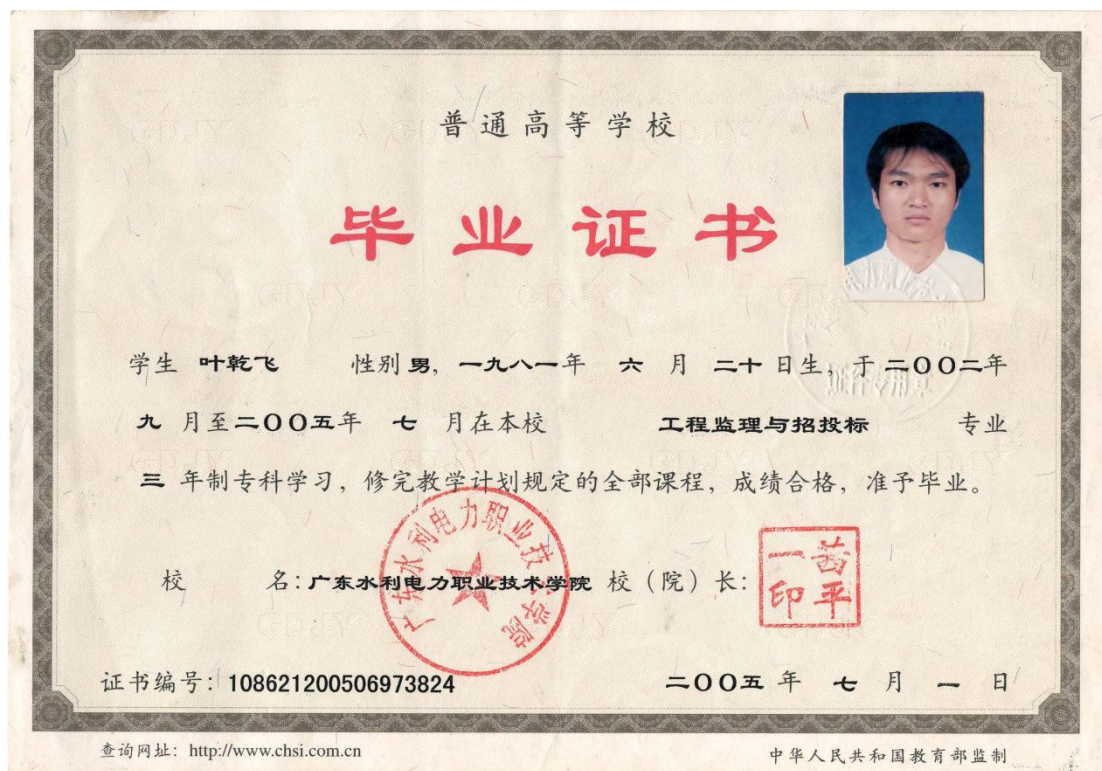 普通高等学校
毕业证书
学生 叶乾飞 性别 男, 一九八一年 六 月 二十 日生, 于二〇〇二年
九 月至二〇〇五年 七 月在本校 工程监理与招投标 专业
三 年制专科学习, 修完教学计划规定的全部课程, 成绩合格, 准予毕业。
广东水利电力职业技术学院
校 名: 广东水利电力职业技术学院 校（院）长:
证书编号: 108621200506973824 二〇〇五 年 七 月 一 日
查询网址: http://www.chsi.com.cn 中华人民共和国教育部监制